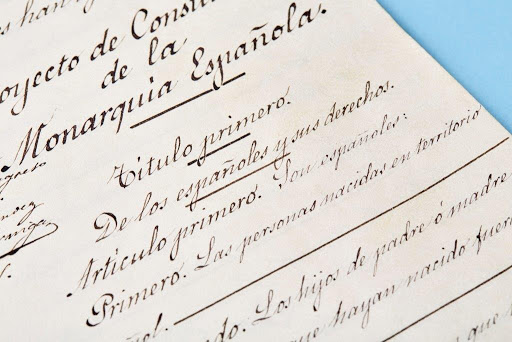 oyecto de Consti
de la
Monarquía Española.
Título primero.
De los españoles y sus derechos.
Artículo primero. Son españoles:
Primero. Las personas nacidas en territorio
ñol.
do. Los hijos de padre ó madre
que hayan nacido fuera